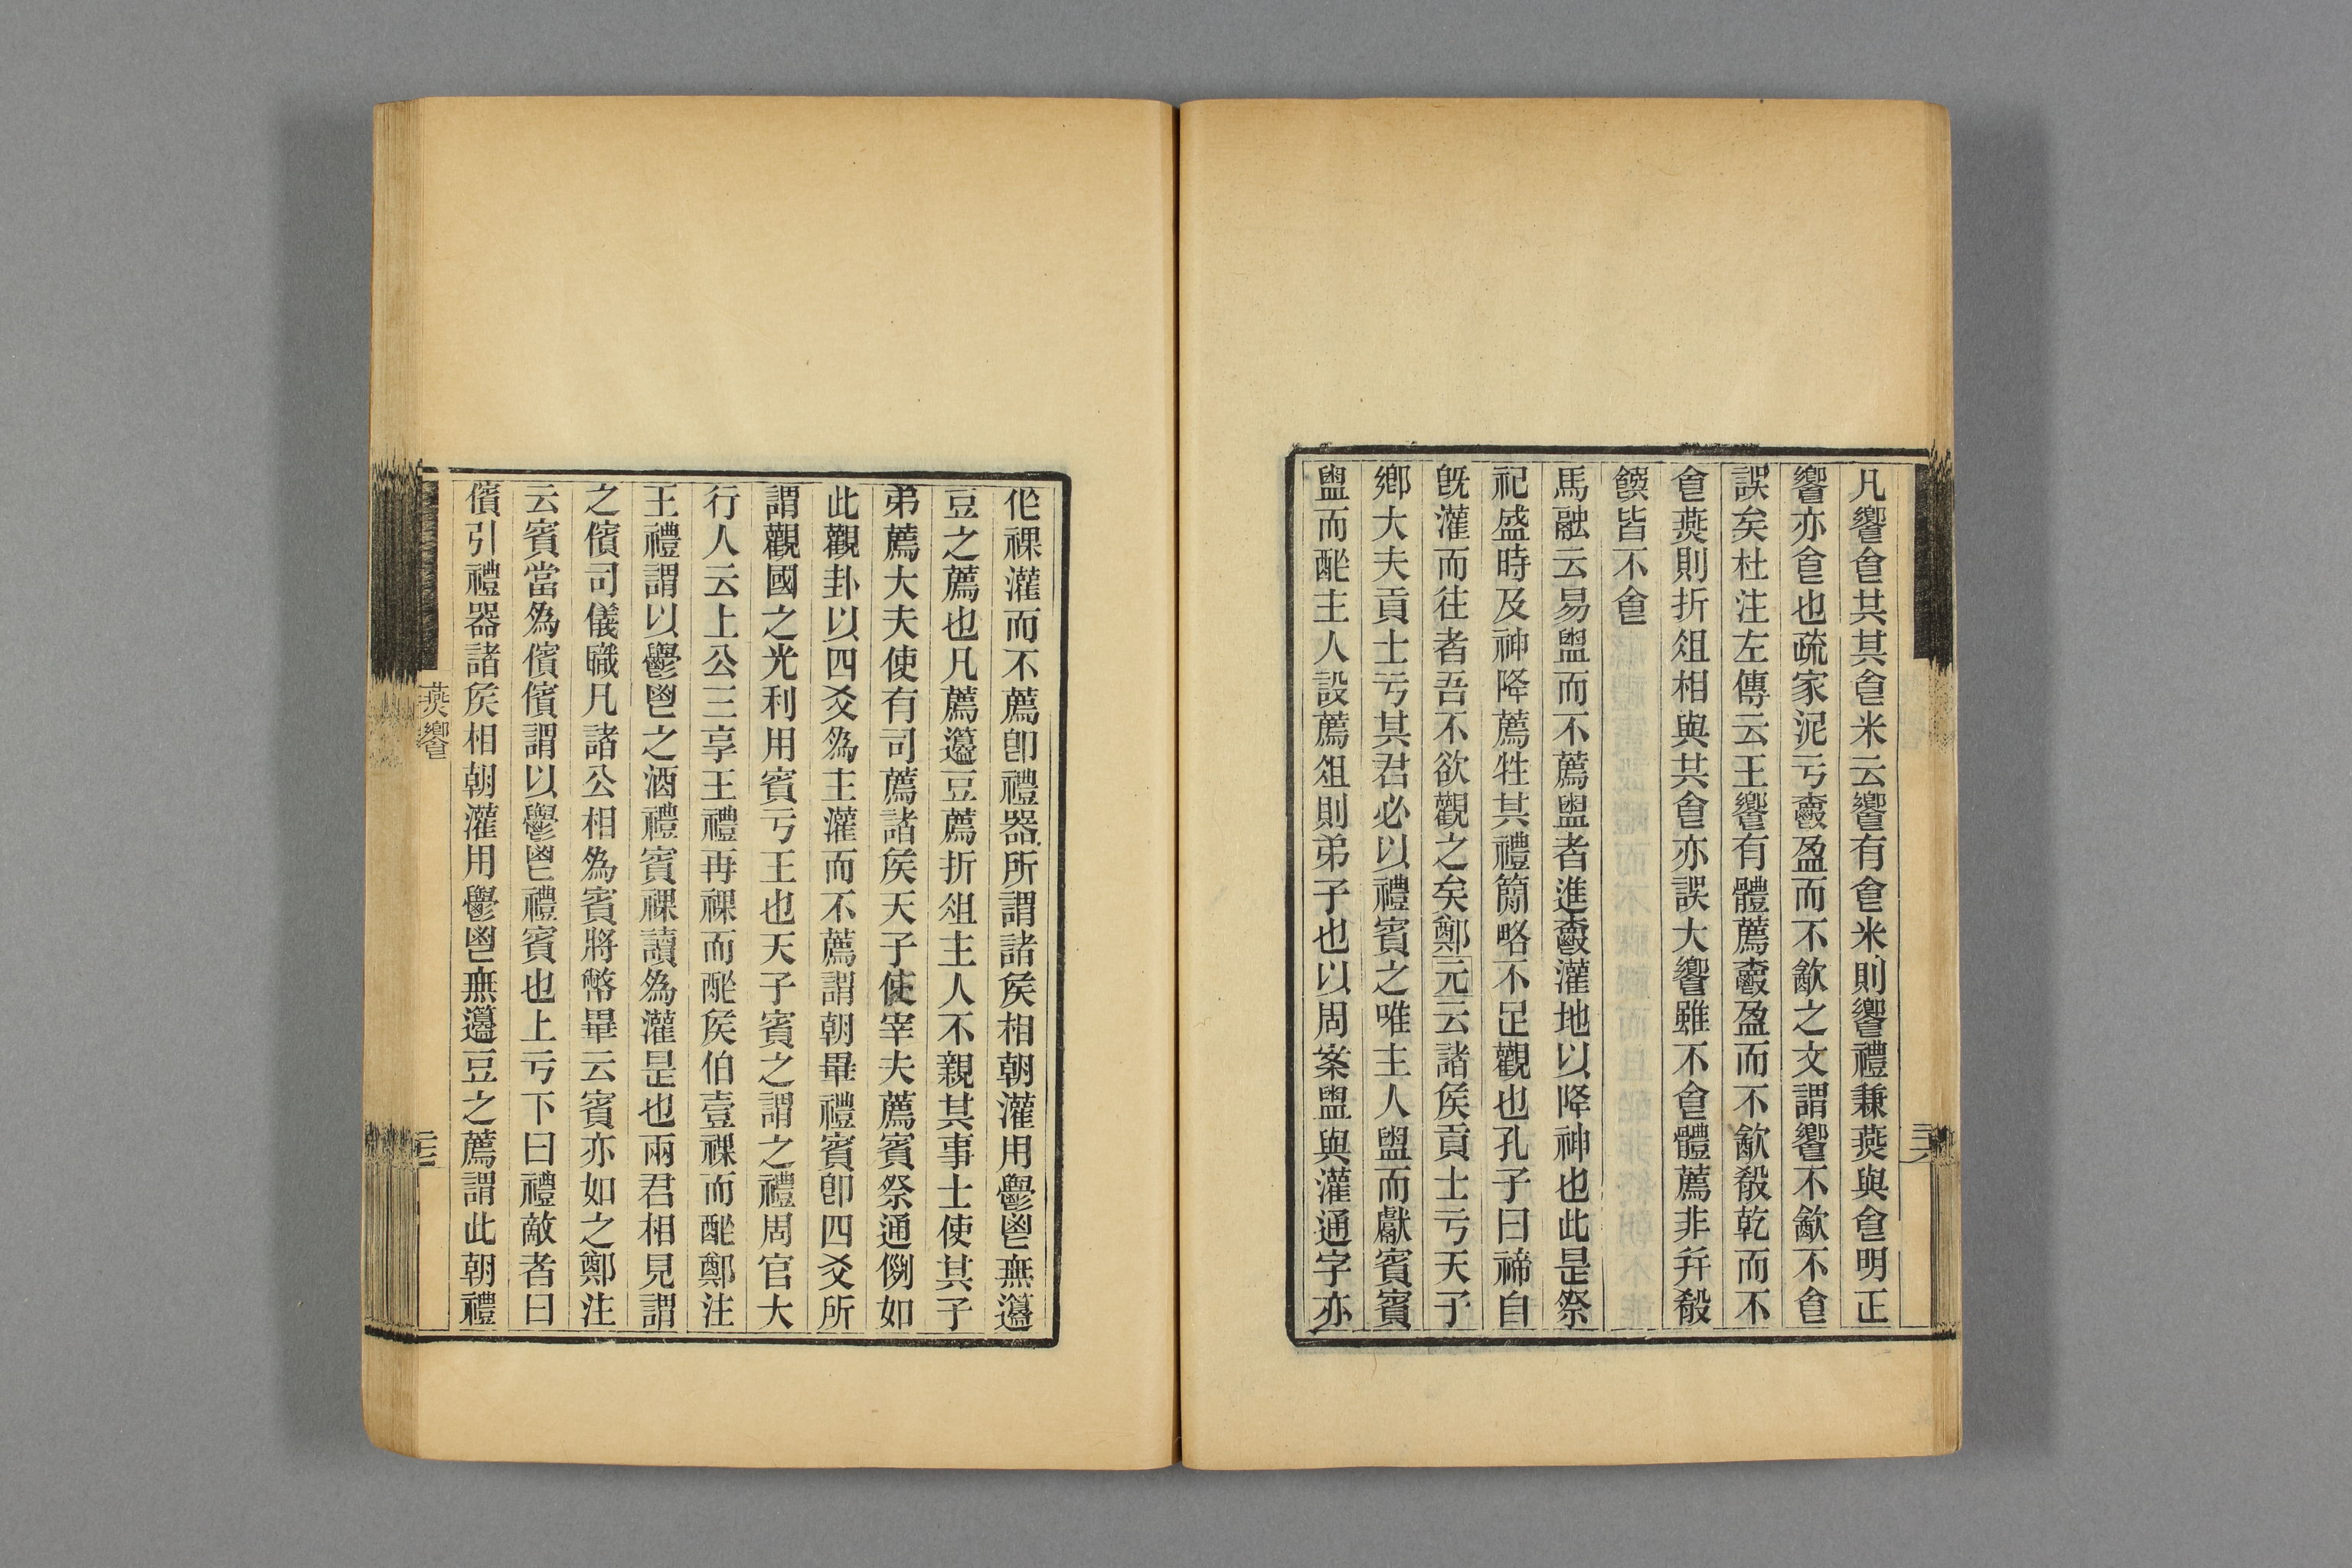 凡饗食共其食米云饗有食米則饗禮兼燕與食明正
饗亦食也疏家泥亏爵盈而不㱃之文謂饗不㱃不食
誤矣杜注左傳云王饗有體薦爵盈而不㱃殽乾而不
食燕則折俎相與共食亦誤大饗雖不食體薦非并殽
饌皆不食
馬融云易盥而不薦盥者進爵灌地以降神也此是祭
祀盛時及神降薦牲其禮簡略不足觀也孔子曰禘自
旣灌而往者吾不欲觀之矣鄭元云諸矦貢士亏天子
鄉大夫貢士亏其君必以禮賓之唯主人盥而獻賓賓
盥而酢主人設薦俎則弟子也以周案盥與灌通字亦
作祼灌而不薦卽禮器所謂諸矦相朝灌用鬱鬯無籩
豆之薦也凡薦籩豆薦折俎主人不親其事士使其子
弟薦大夫使有司薦諸矦天子使宰夫薦賓祭通例如
此觀卦以四爻爲主灌而不薦謂朝畢禮賓卽四爻所
謂觀國之光利用賓亏王也天子賓之謂之禮周官大
行人云上公三享王禮再祼而酢矦伯壹祼而酢鄭注
王禮謂以鬱鬯之酒禮賓祼讀爲灌是也兩君相見謂
之儐司儀職凡諸公相爲賓將幣畢云賓亦如之鄭注
云賓當爲儐儐謂以鬱鬯禮賓也上亏下曰禮敵者曰
儐引禮器諸矦相朝灌用鬱鬯無籩豆之薦謂此朝禮
燕饗食